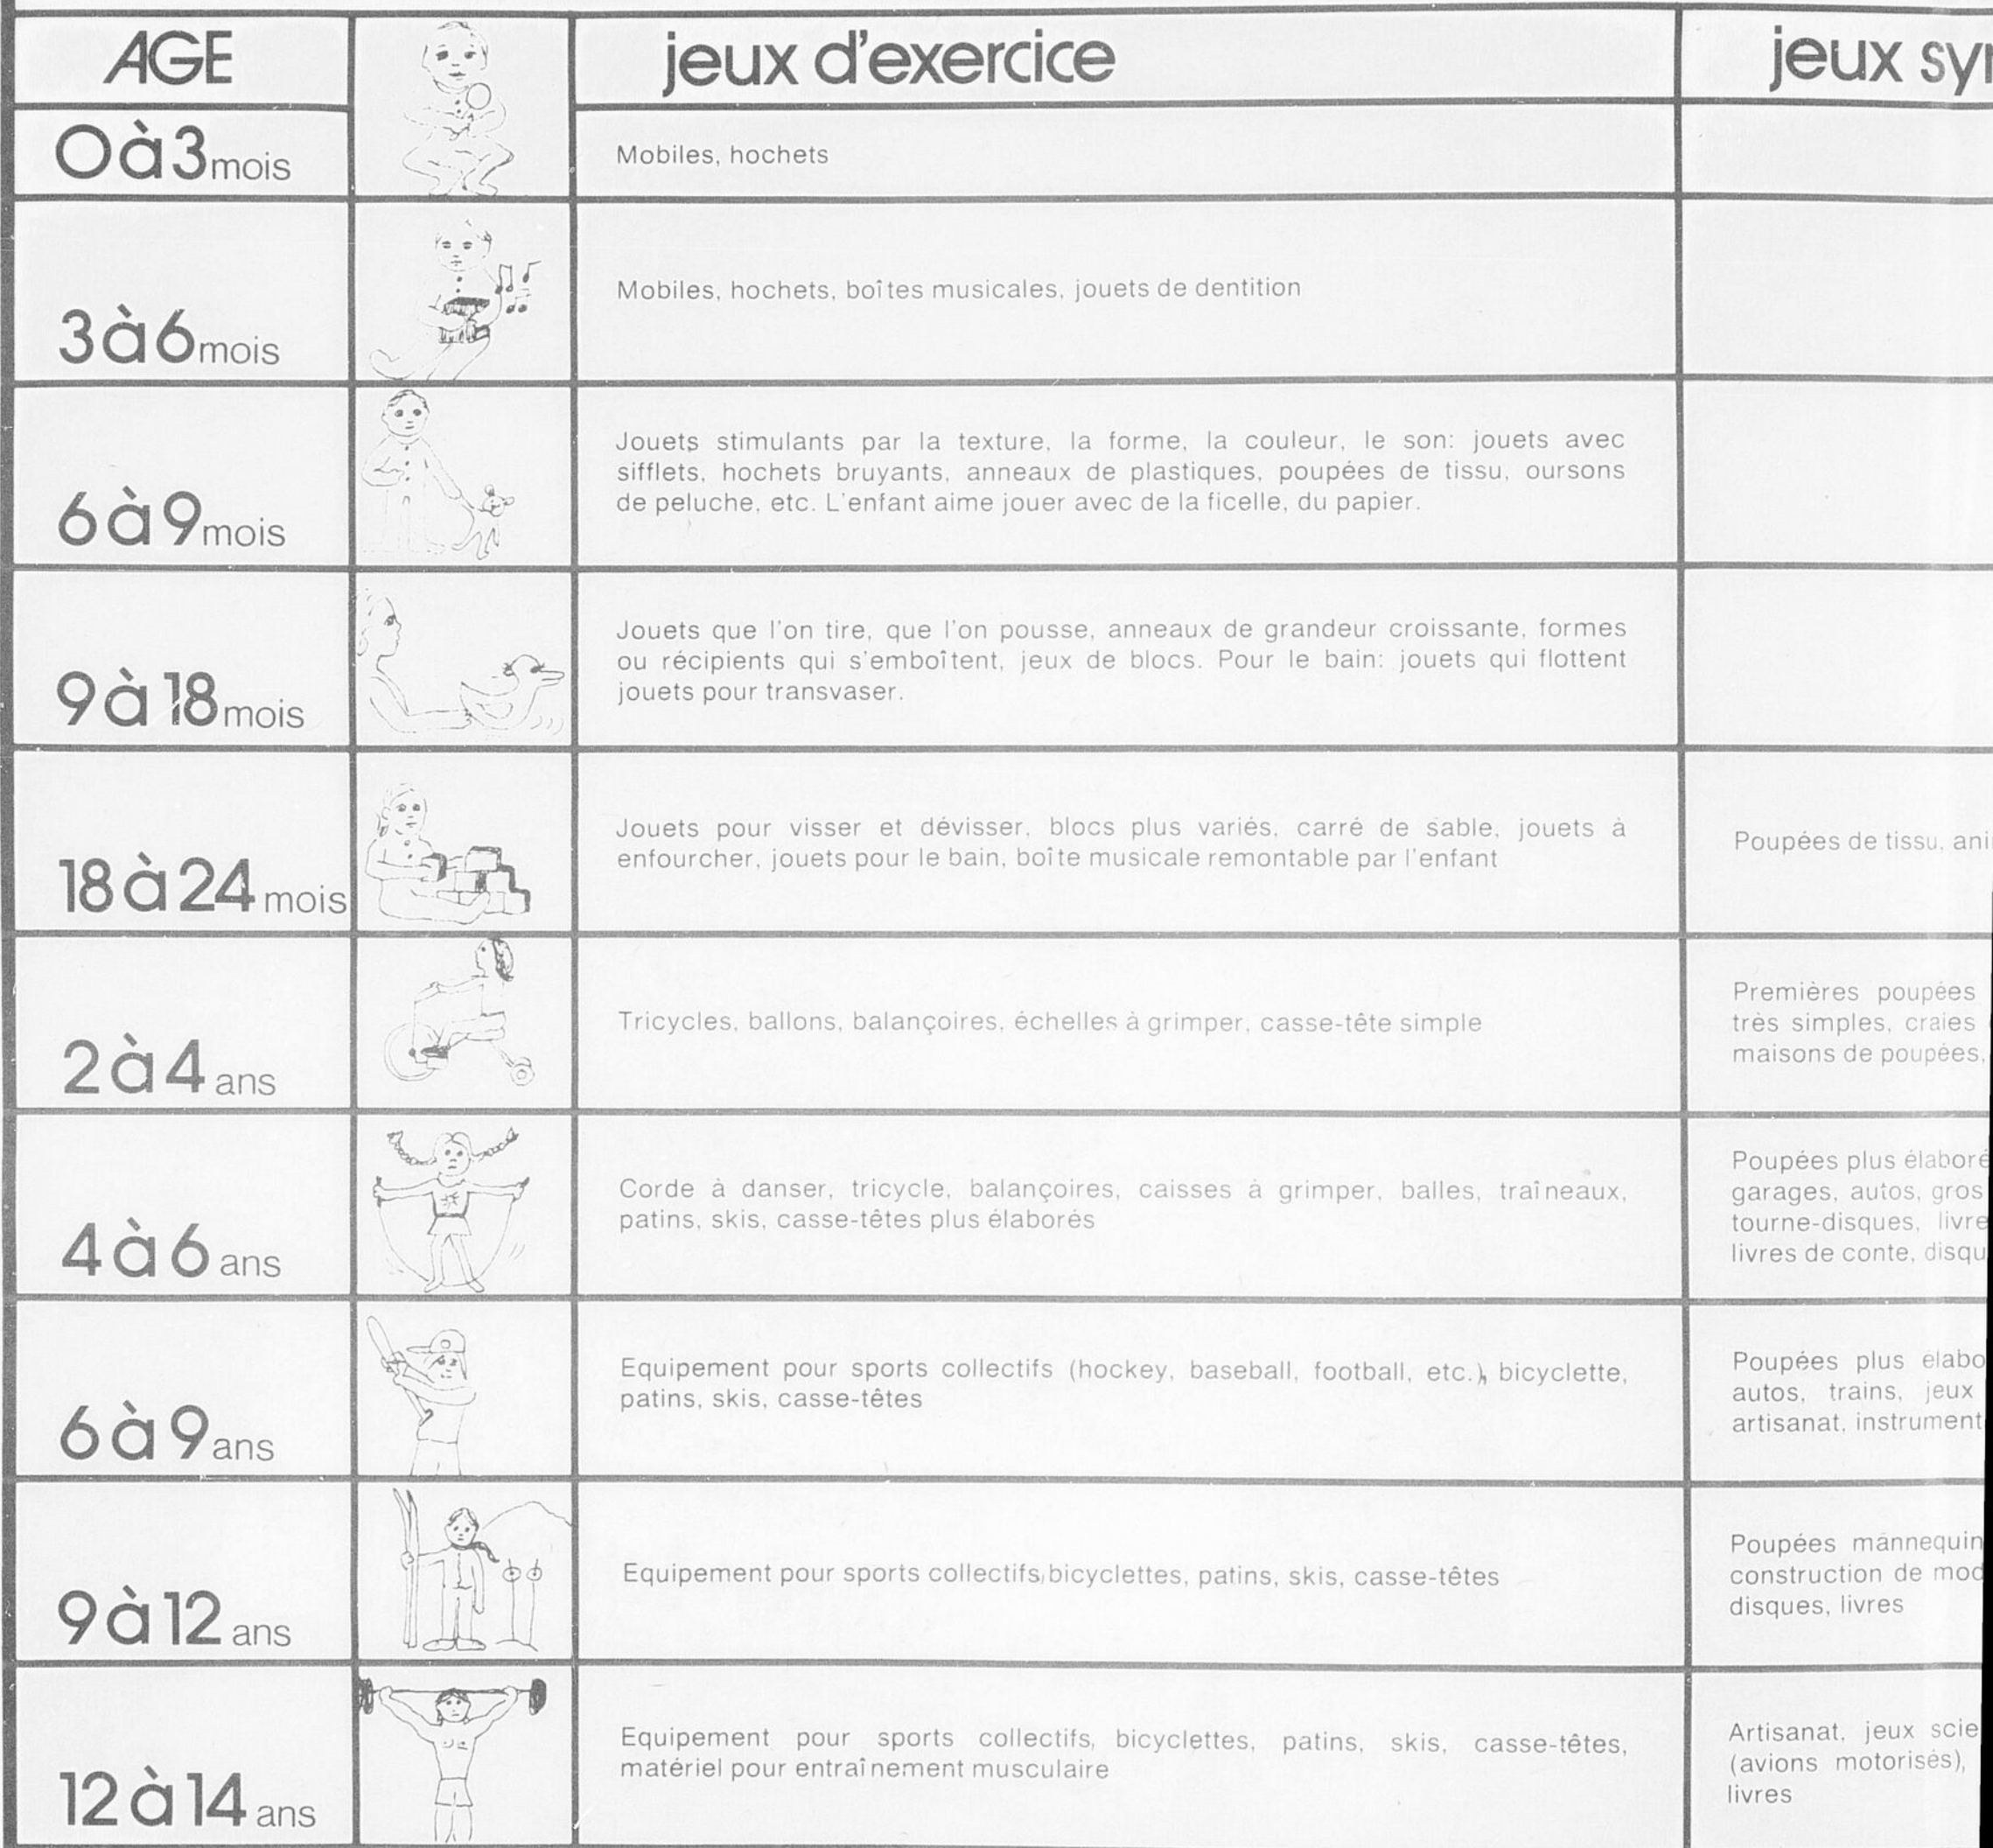 AGE
jeux d'exercice
jeux
0à3mois
Mobiles, hochets
3à6mois
Mobiles, hochets, boîtes musicales, jouets de dentition
6à9mois
Jouets stimulants par la texture, la forme, la couleur, le son: jouets avec
sifflets, hochets bruyants, anneaux de plastiques, poupées de tissu, oursons
de peluche, etc. L'enfant aime jouer avec de la ficelle, du papier.
9à18mois
Jouets que l'on tire, que l'on pousse, anneaux de grandeur croissante, formes
ou récipients qui s'emboîtent, jeux de blocs. Pour le bain: jouets qui flottent
jouets pour transvaser.
18à24mois
Jouets pour visser et dévisser, blocs plus variés, carré de sable, jouets à
enfourcher, jouets pour le bain, boîte musicale remontable par l'enfant
Poupées de tissu,
2à4ans
Tricycles, ballons, balançoires, échelles à grimper, casse-tête simple
Premières poupées
très simples, craies
maisons de poupées,
4à6ans
Corde à danser, tricycle, balançoires, caisses à grimper, balles, traîneaux,
patins, skis, casse-têtes plus élaborés
Poupées plus
garages, autos, gros
tourne-disques,
livres de conte,
6à9ans
Equipement pour sports collectifs (hockey, baseball, football, etc.), bicyclette,
patins, skis, casse-têtes
Poupées plus
autos, trains, jeux
artisanat,
9à12ans
Equipement pour sports collectifs, bicyclettes, patins, skis, casse-têtes
Poupées
construction de
disques, livres
12à14ans
Equipement pour sports collectifs, bicyclettes, patins, skis, casse-têtes,
matériel pour entraînement musculaire
Artisanat, jeux
(avions motorisés),
livres